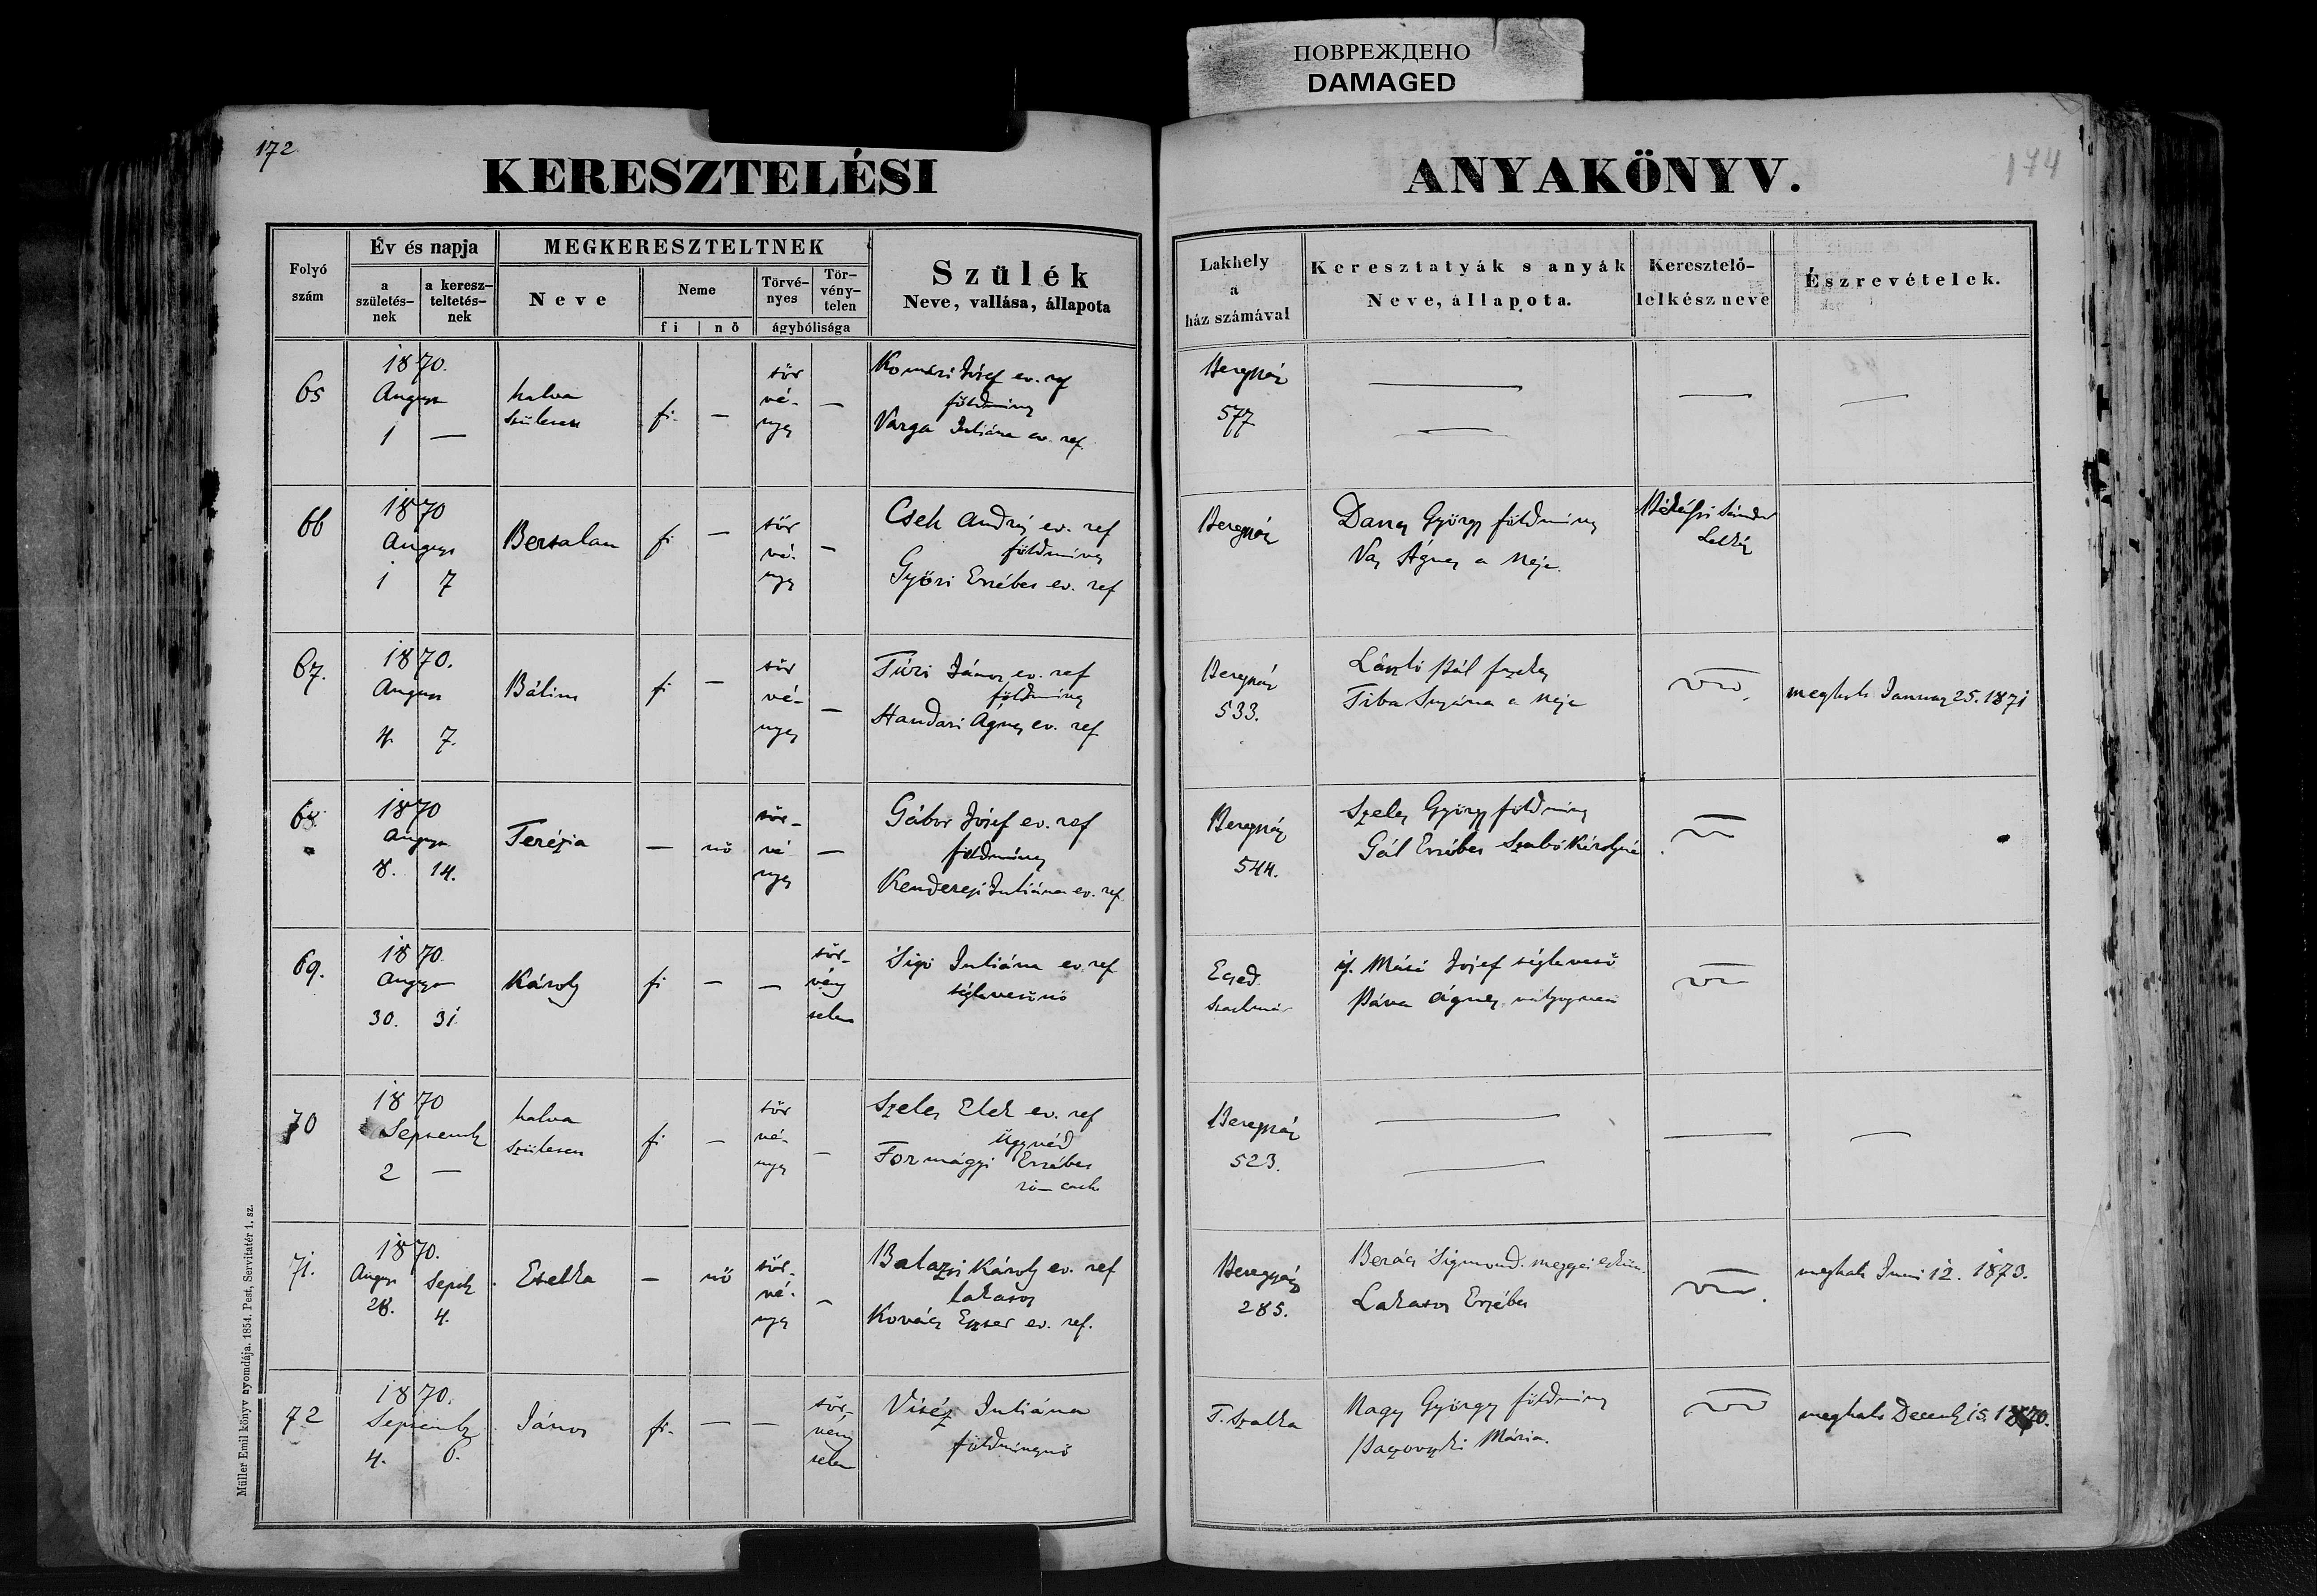 ПОВРЕЖДЕНО
DAMAGED
172
KERESZTELÉSI
ANYAKÖNYV.
174
Folyó szám
Év és napja
a születés-nek
a keresz-teltetés-nek
MEGKERESZTELTNEK
Neve
Neme
fi
nő
Törvé-nyes
Tör-vény-telen
ágybólisága
Szülék
Neve, vallása, állapota
Lakhely
a
ház számával
Keresztatyák s anyák
Neve, állapota.
Keresztelő-
lelkész neve
Észrevételek.
65
1870.
August
1 —
halva
született
fi — tör
vé-
nyes —
Komári Jósef ev. ref
földmives
Varga Juliána ev. ref.
Beregszász
577
66
1870
August
1 7
Bertalan
fi — tör
vé-
nyes —
Cseh András ev. ref
földmives
Győri Erzsébet ev. ref
Beregszász
György földmives
Vas Ágnes a neje.
Sándor
Lelkész
67.
1870.
August
4. 7.
Bálint
fi — tör
vé-
nyes —
Túri János ev. ref
földmives
Ágnes ev. ref
Beregszász
533.
László Pál
Tiba a neje
meghalt Januar 25. 1871
68.
1870
August
8. 14.
Terézia
— nő tör-
vé
nyes —
Gábor Jósef ev. ref
földmives
Kenderesi Juliána ev. ref.
Beregszász
544.
Szeles György földmives
Gál Erzsébet Szabó Károlyné
69.
1870
August
30. 31
Károly
fi — — tör-
vény
telen
Juliána ev. ref
téglavető nő
Ecsed
Szathmár
if. Jósef téglavető
Páva Ágnes
70
1870
Septemb
2 —
halva
született
fi — tör
vé-
nyes —
Szeles Elek ev. ref
Ügyvéd
Formágyi Erzsébet
rom cath.
Beregszász
523.
71.
1870.
August Septb
28. 4.
Etelka
— nő tör-
vé-
nyes —
Balazsi Károly ev. ref
lakatos
Kovács Eszter ev. ref.
Beregszász
285.
Sigmond megyei
Lakatos Erzsébet
meghalt Juni 12. 1873.
72
1870.
Septemb
4. 6.
János
fi — — tör-
vény
telen
Juliána
földmivesnő
T. Szalka
Nagy György földmives
Mária.
meghalt Decemb 15. 1870.
Müller Emil könyv nyomdája. 1854. Pest, Servitatér 1. sz.